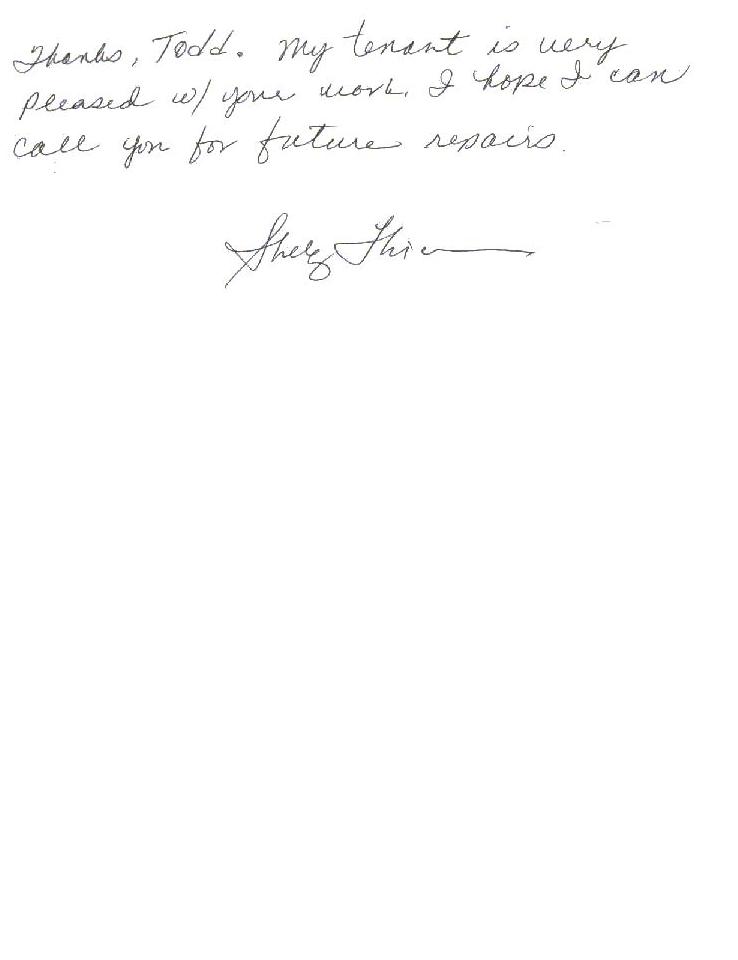 Thanks, Todd. My tenant is very
pleased w/ your work. I hope I can
call you for future repairs.